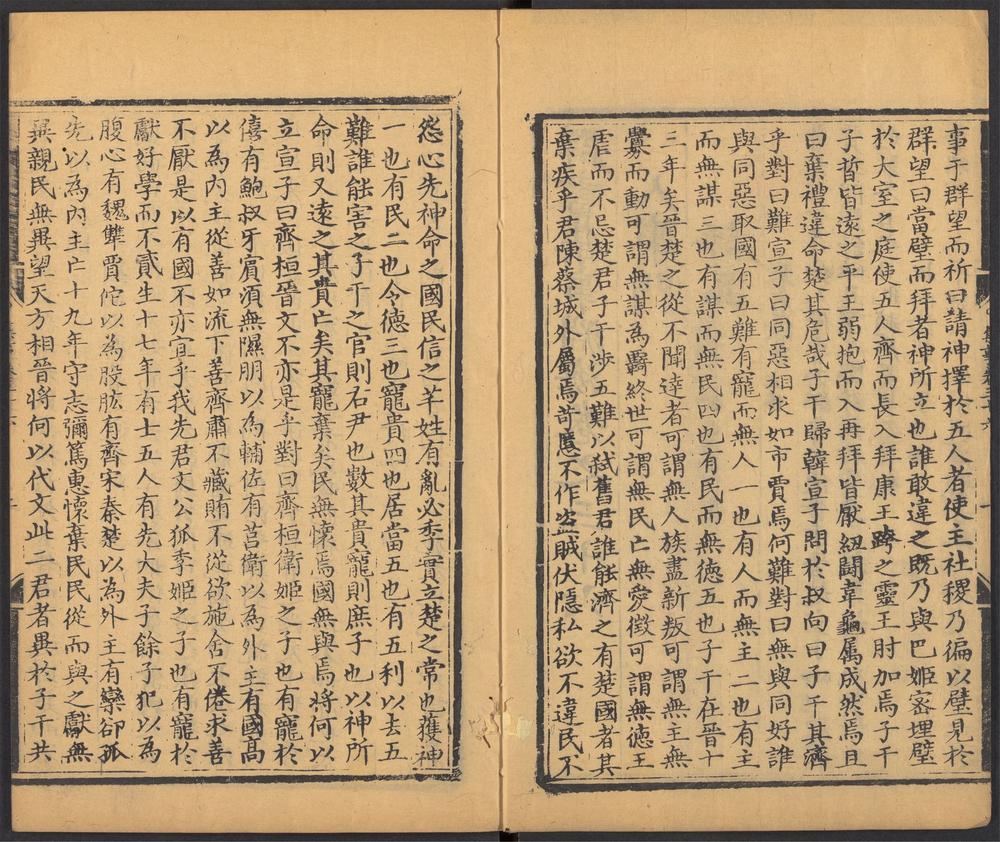 事于群望而祈曰請神擇於五人者使主社稷乃徧以璧見於
群望曰當璧而拜者神所立也誰敢違之既乃與巴姬密埋璧
於大室之庭使五人齊而長入拜康王跨之靈王肘加焉子干
子晳皆遠之平王弱抱而入再拜皆厭紐鬬韋龜属成然焉且
曰棄禮違命楚其危哉子干歸韓宣子問於叔向曰子干其濟
乎對曰難宣子曰同惡相求如市賈焉何難對曰無與同好誰
與同惡取國有五難有寵而無人一也有人而無主二也有主
而無謀三也有謀而無民四也有民而無德五也子干在晉十
三年矣晉楚之從不聞達者可謂無人族盡新叛可謂無主無
釁而動可謂無謀為羇終世可謂無民亡無愛徵可謂無德王
虐而不忌楚君子干涉五難以弑舊君誰能濟之有楚國者其
棄疾乎君陳蔡城外屬焉苛慝不作盗賊伏隱私欲不違民不
怨心先神命之國民信之芊姓有亂必季實立楚之常也獲神
一也有民二也令德三也寵貴四也居當五也有五利以去五
難誰能害之子干之官則右尹也數其貴寵則庶子也以神所
命則又遠之其貴亡矣其寵棄矣民無懷焉國無與焉將何以
立宣子曰齊桓晉文不亦是乎對曰齊桓衛姬之子也有寵於
僖有鮑叔牙賓湏無隰朋以為輔佐有莒衛以為外主有國高
以為內主從善如流下善齊肅不藏賄不從欲施舍不倦求善
不厭是以有國不亦宜乎我先君文公狐季姬之子也有寵於
獻好學而不貳生十七年有士五人有先大夫子餘子犯以為
腹心有魏犨賈佗以為股肱有齊宋秦楚以為外主有欒郤狐
先以為內主亡十九年守志彌篤惠懷棄民民從而與之獻無
異親民無異望天方相晉將何以代文此二君者異於子干共